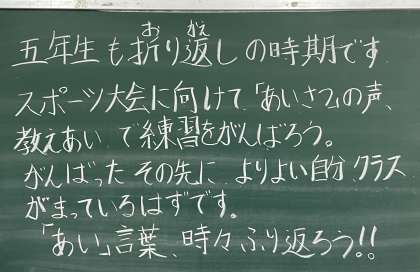 五年生も折り返しの時期です
スポーツ大会に向けて「あいさつ」の声、
教えあいで練習をがんばろう。
がんばったその先に よりよい自分 クラス
がまっているはずです。
「あい」言葉、時々ふり返ろう!!